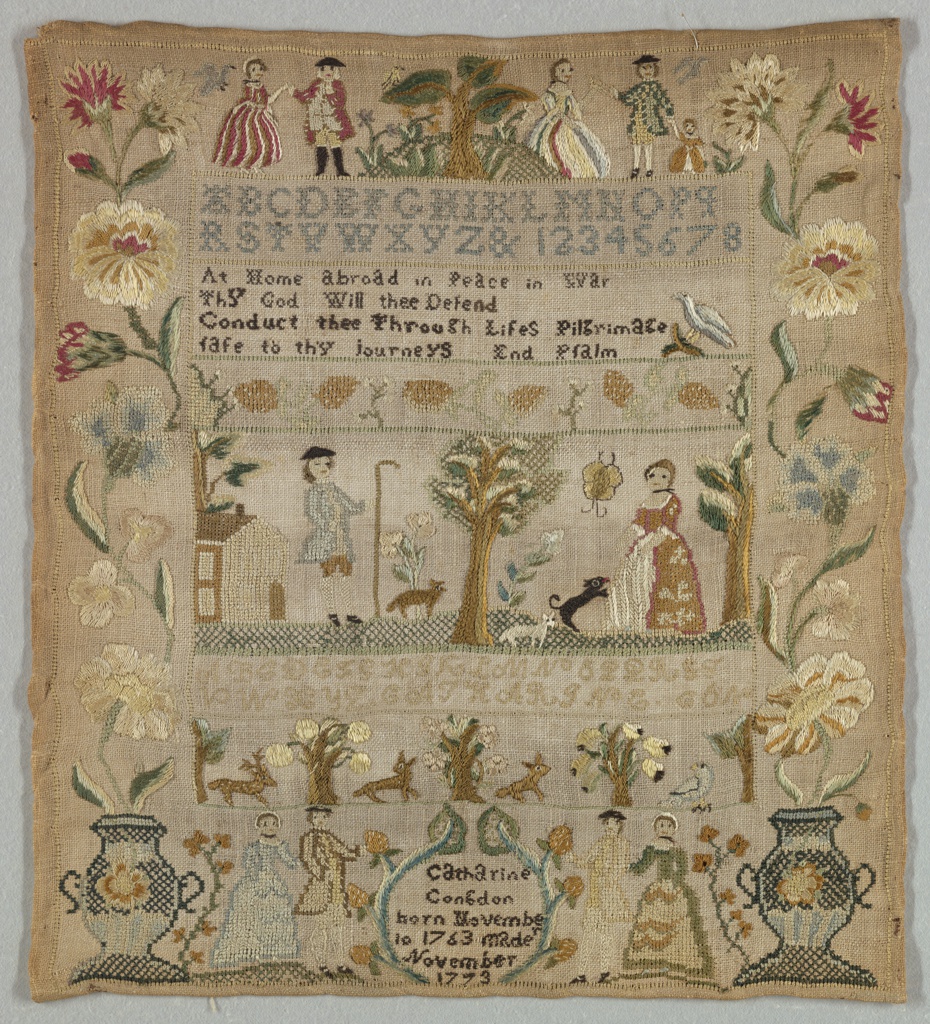 ABCDEFGHIKLMNOPQ
RSTVWXYZ& 12345678
At Home abroad in Peace in War
Thy God Will thee Defend
Conduct thee Through Lifes Pilgrimage
safe to thy journeys End Psalm
Catharine
Congdon
born November
10 1763 made
November
1773